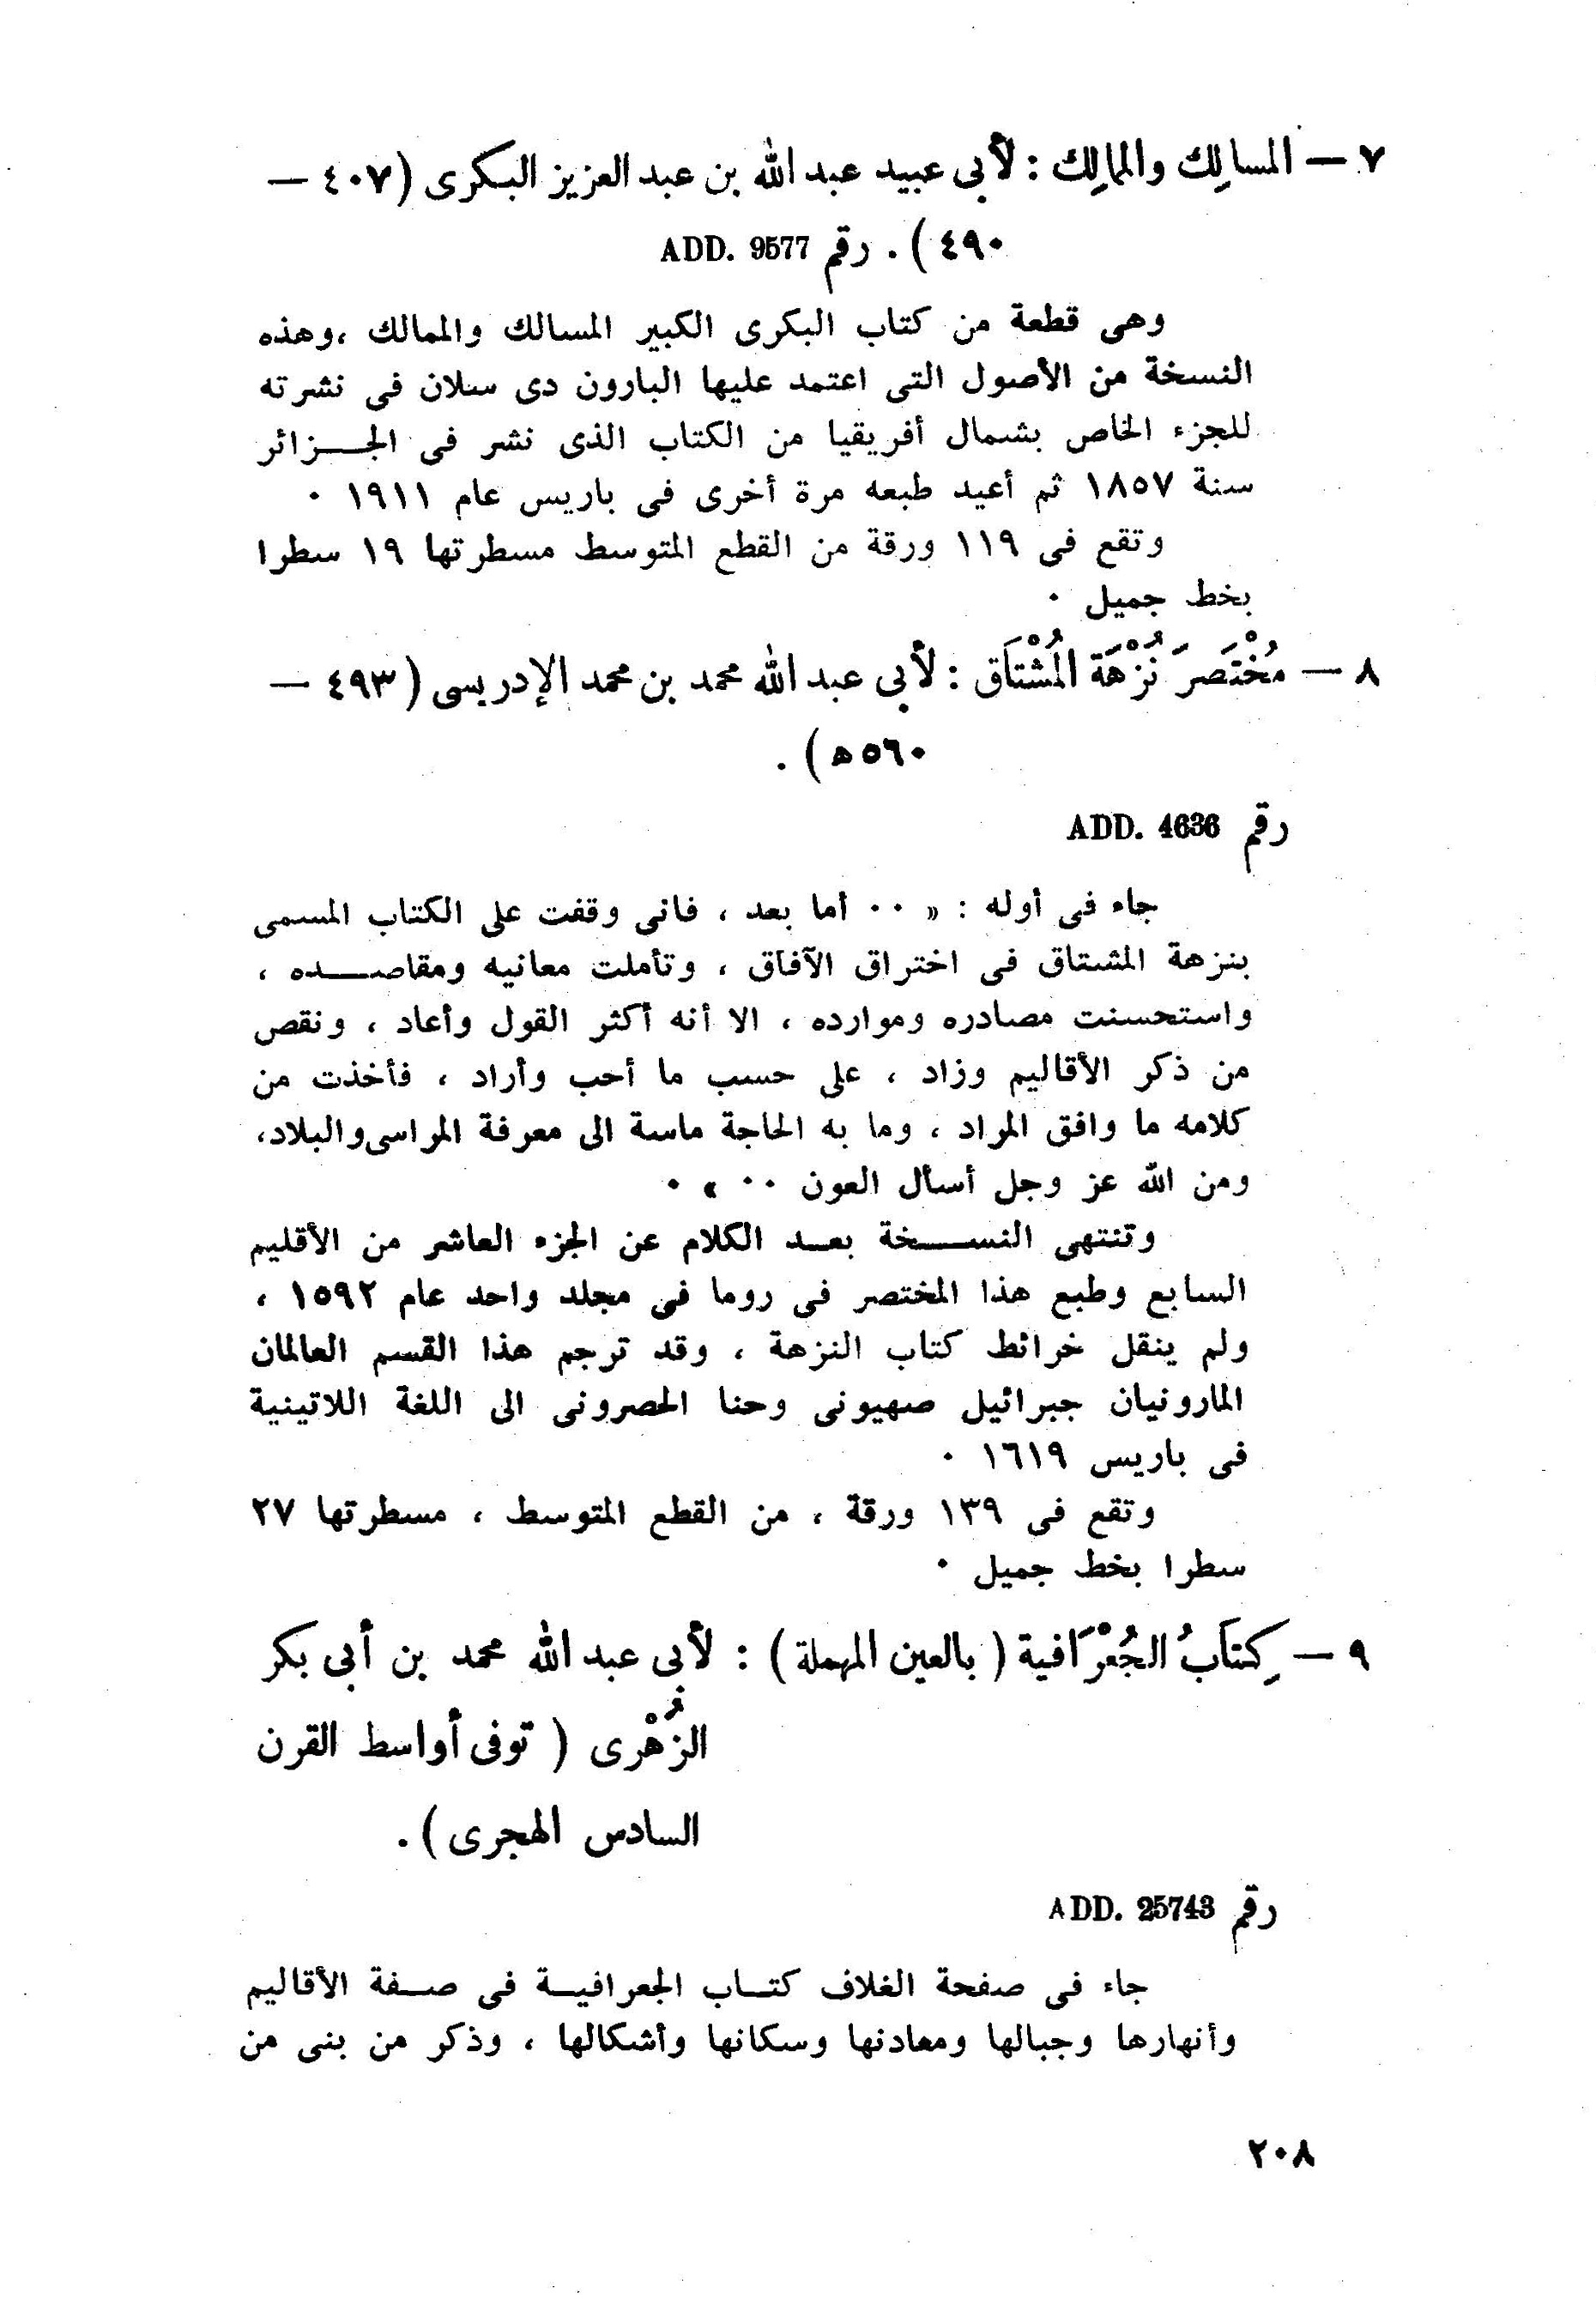 ٧ — المسالِك والممالِك : لأبى عبيد عبد الله بن عبد العزيز البكرى (٤٠٧ —
٤٩٠) . رقم ADD. 9577
وهى قطعة من كتاب البكرى الكبير المسالك والممالك ،وهذه
النسخة من الأصول التى اعتمد عليها البارون دى سلان فى نشرته
للجزء الخاص بشمال أفريقيا من الكتاب الذى نشر فى الجـــزائر
سنة ١٨٥٧ ثم أعيد طبعه مرة أخرى فى باريس عام ١٩١١ ٠
وتقع فى ١١٩ ورقة من القطع المتوسط مسطرتها ١٩ سطرا
بخط جميل ٠
٨ — مُخْتَصرَ نُزْهَة المُشْتَاق : لأبى عبد الله محمد بن محمد الإدريسى (٤٩٣ —
٥٦٠ ه) .
رقم ADD. 4636
جاء فى أوله : « ٠٠ أما بعد ، فانى وقفت على الكتاب المسمى
بنزهة المشتاق فى اختراق الآفاق ، وتأملت معانيه ومقاصـــده ،
واستحسنت مصادره وموارده ، الا أنه أكثر القول وأعاد ، ونقص
من ذكر الأقاليم وزاد ، على حسب ما أحب وأراد ، فأخذت من
كلامه ما وافق المراد ، وما به الحاجة ماسة الى معرفة المراسى والبلاد،
ومن الله عز وجل أسأل العون ٠٠ » ٠
وتنتهى النســـخة بعــد الكلام عن الجزء العاشر من الأقليم
السابع وطبع هذا المختصر فى روما فى مجلد واحد عام ١٥٩٢ ،
ولم ينقل خرائط كتاب النزهة ، وقد ترجم هذا القسم العالمان
المارونيان جبرائيل صهيونى وحنا الحصرونى الى اللغة اللاتينية
فى باريس ١٦١٩ ٠
وتقع فى ١٣٩ ورقة ، من القطع المتوسط ، مسطرتها ٢٧
سطرا بخط جميل ٠
٩ — كِتَابُ الجُعْرَافية (بالعين المهملة) : لأبى عبد الله محمد بن أبى بكر
الزُهْرى ( توفى أواسط القرن
السادس الهجرى) .
رقم ADD. 25743
جاء فى صفحة الغلاف كتــاب الجعرافيــة فى صــفة الأقاليم
وأنهارها وجبالها ومعادنها وسكانها وأشكالها ، وذكر من بنى من
٢٠٨